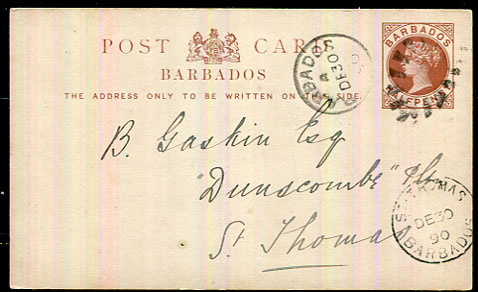 POST CARD
BARBADOS
THE ADDRESS ONLY TO BE WRITTEN ON THIS SIDE.
BARBADOS
HALFPENNY
BARBADOS
A
DE 30
90
B. Gaskin Esq
"Dunscombe"
St. Thomas
ST THOMAS
DE 30
90
BARBADOS